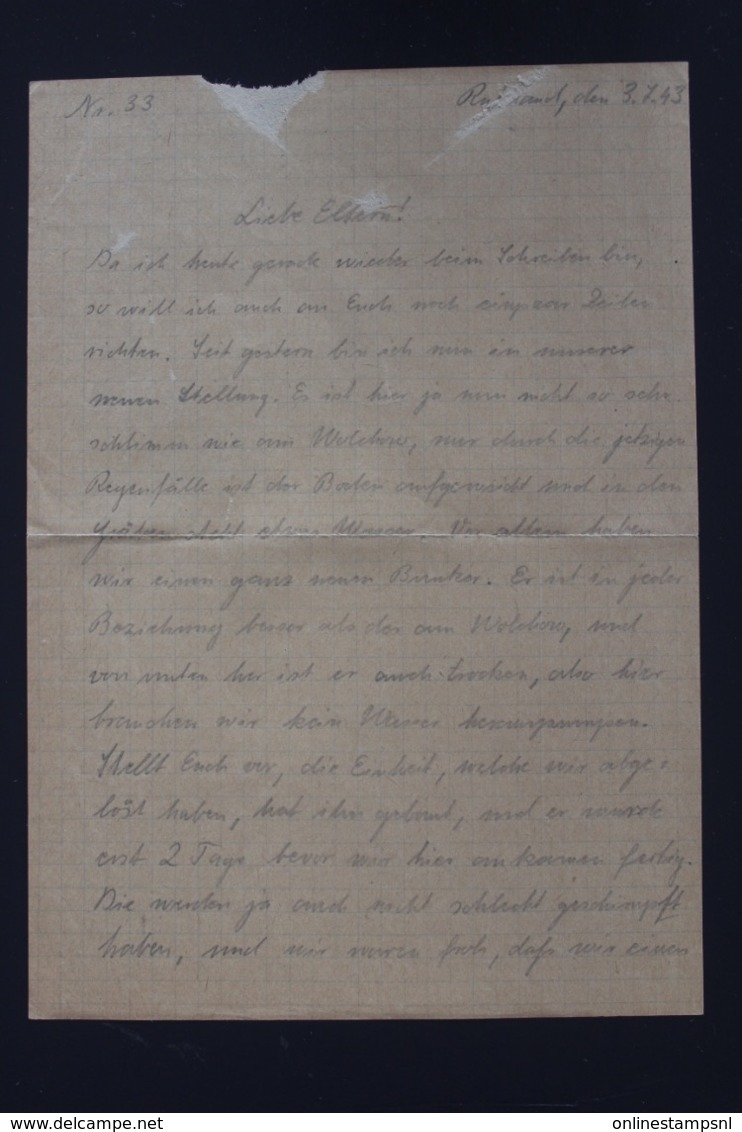 Nr. 33
Rußland, den 3.7.43
Liebe Eltern!
Da ich heute gerade wieder beim Schreiben bin,
so will ich auch an Euch noch einpaar Zeilen
richten. Seit gestern bin ich nun in unserer
neuen Stellung. Es ist hier ja nun nicht so sehr
schlimm wie am Wolchow, nur durch die jetzigen
Regenfälle ist der Boden aufgeweicht und in den
Gräben steht etwas Wasser. Vor allem haben
wir einen ganz neuen Bunker. Er ist in jeder
Beziehung besser als der am Wolchow, und
von unten her ist er auch trocken, also hier
brauchen wir kein Wasser herauspumpen.
Stellt Euch vor, die Einheit, welche wir abge-
löst haben, hat ihn gebaut, und er wurde
erst 2 Tage bevor wir hier ankamen fertig.
Die werden ja auch nicht schlecht geschimpft
haben, und wir waren froh, daß wir einen
onlinestampsnl